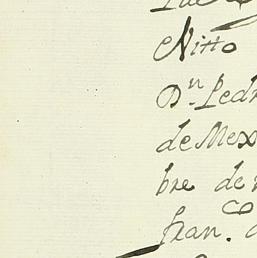 Nitto
Dn. Pedr
de Mex
bre de
fran.co